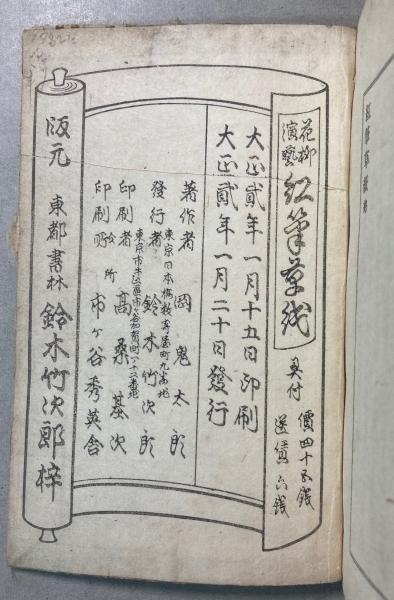 花柳
演藝
紅筆草紙
奥付
價四十五錢
送費六錢
大正貳年一月十五日印刷
大正貳年一月二十日發行
著作者 岡鬼太郎
東京日本橋數寄屋町九番地
發行者 鈴木竹次郎
東京市牛込區市ヶ谷加賀町一ノ十二番地
印刷者 高桑基次
印刷所 市ヶ谷秀英舍
版元 東都書林 鈴木竹次郎梓